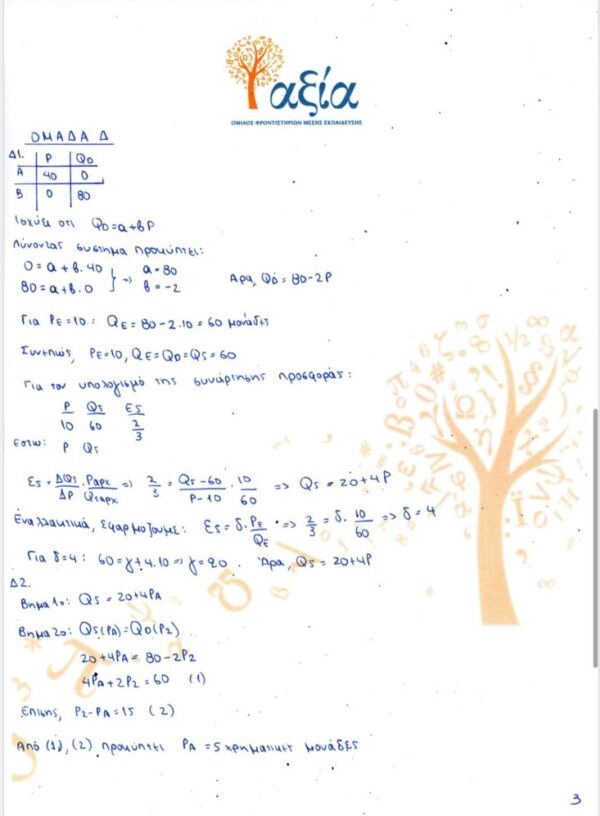 αξία
ΟΜΙΛΟΣ ΦΡΟΝΤΙΣΤΗΡΙΩΝ ΜΕΣΗΣ ΕΚΠΑΙΔΕΥΣΗΣ
ΟΜΑΔΑ Δ
Δ1. P QD
A 40 0
B 0 80
Ισχύει ότι QD=α+βP
Λύνοντας σύστημα προκύπτει:
0=α+β.40 } => α=80
80=α+β.0 β=-2 Άρα, QD=80-2P
Για PE=10: QE=80-2.10=60 μονάδες
Συνεπώς, PE=10, QE=QD=QS=60
Για τον υπολογισμό της συνάρτησης προσφοράς:
P QS ES
10 60 2/3
έστω: P QS
ES = ΔQS/ΔP . Pαρχ/QSαρχ => 2/3 = QS-60/P-10 . 10/60 => QS=20+4P
Εναλλακτικά, εφαρμόζουμε: ES=δ.PE/QE => 2/3=δ.10/60 => δ=4
Για δ=4: 60=γ+4.10 => γ=20. Άρα, QS=20+4P
Δ2.
Βήμα 1ο: QS=20+4PA
Βήμα 2ο: QS(PA)=QD(P2)
20+4PA=80-2P2
4PA+2P2=60 (1)
Επίσης, P2-PA=15 (2)
Από (1), (2) προκύπτει PA=5 χρηματικές μονάδες
3